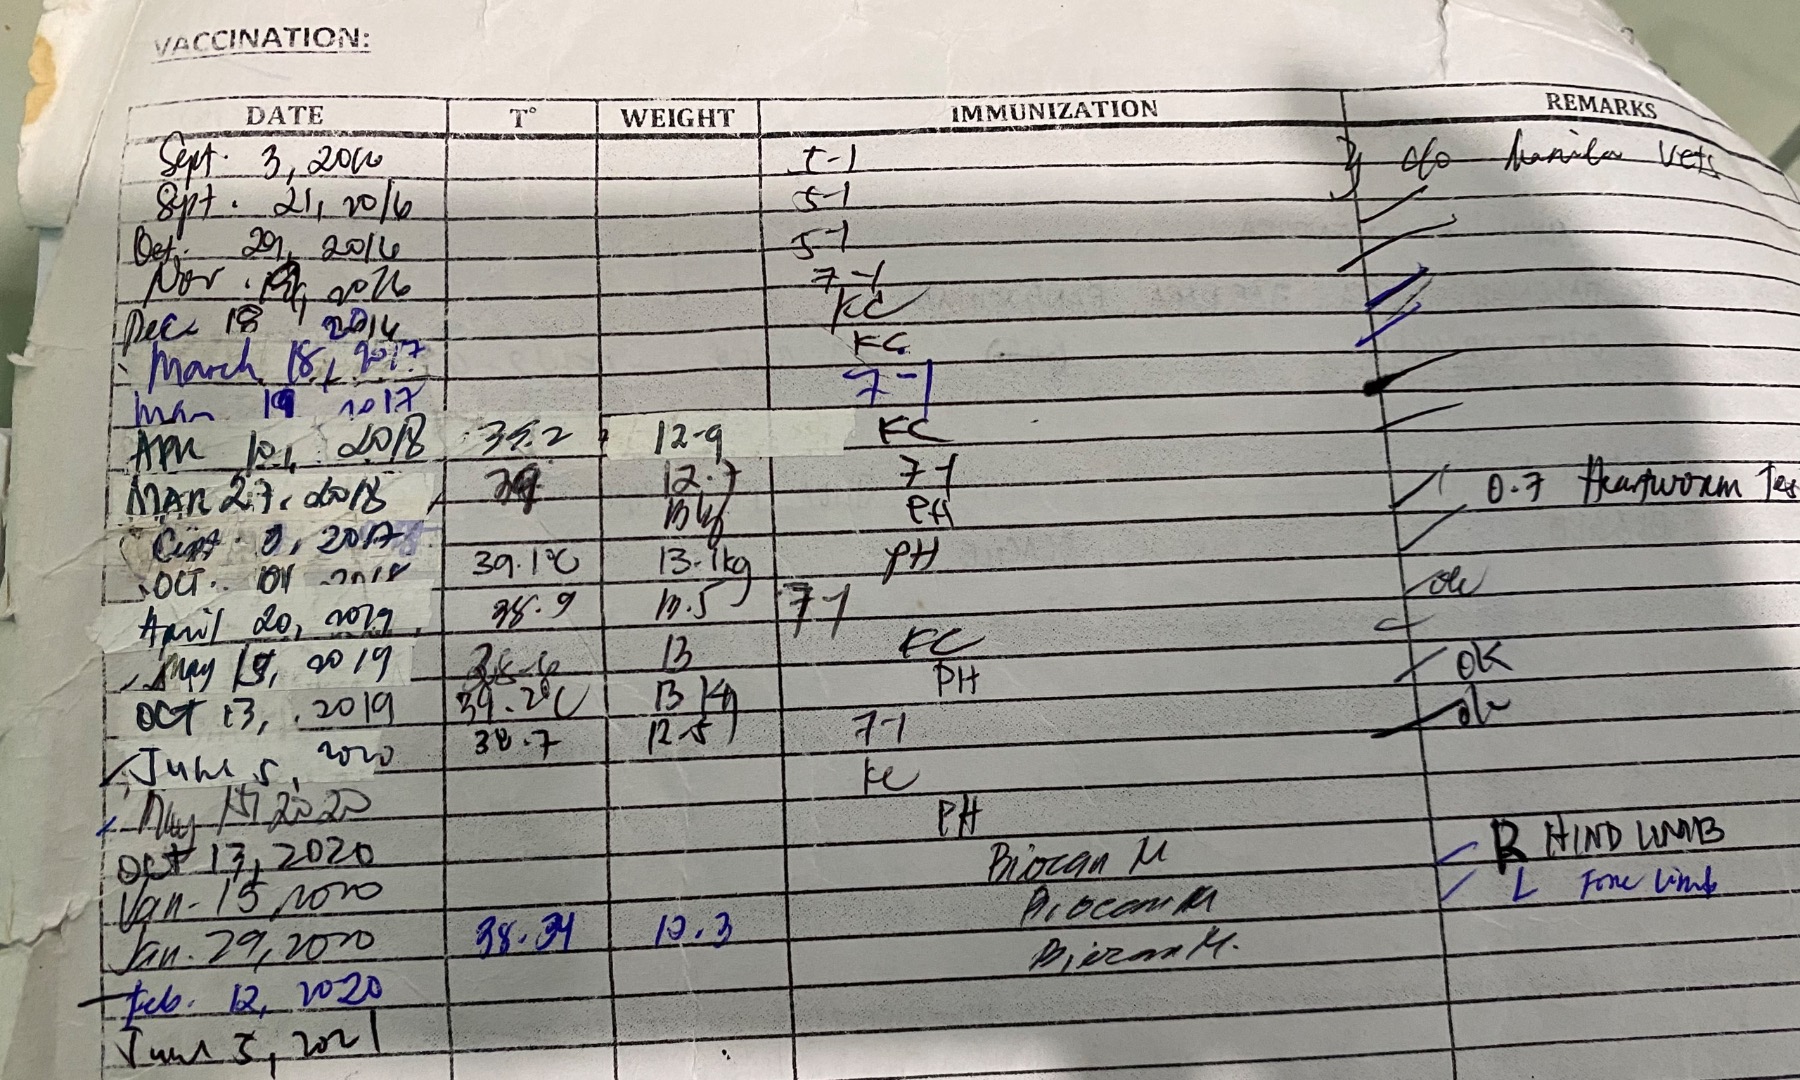 VACCINATION:
DATE T° WEIGHT IMMUNIZATION REMARKS
Sept. 3, 2016 5-1 c/o Manila Vets
Sept. 21, 2016 5-1
Oct. 29, 2016 5-1
Nov. 2016 7-1
Dec 18 2016 KC
March 18, 2017 KC
Mar 19 2017 7-1
APR 10, 2018 12.9 KC
MAR 27, 2018 39 12.7 7-1 0.7 Heartworm Tes
Sept. 9, 2017 13 kg PH
OCT. 01 2018 39.1°C 13.1kg PH
April 20, 2019 38.9 13.5 7-1 ok
May 15, 2019 38.6 13 KC
OCT 13, 2019 39.2°C 13 Kg PH OK
June 5, 2020 38.7 12.5 7-1 ok
May 15, 2020 KC
Oct 13, 2020 PH
Jan. 15, 2020 Biocan M R HIND LIMB
Jan. 29, 2020 38.34 Biocan M L Fore limb
Feb. 12, 2020 Biocan M.
June 5, 2021